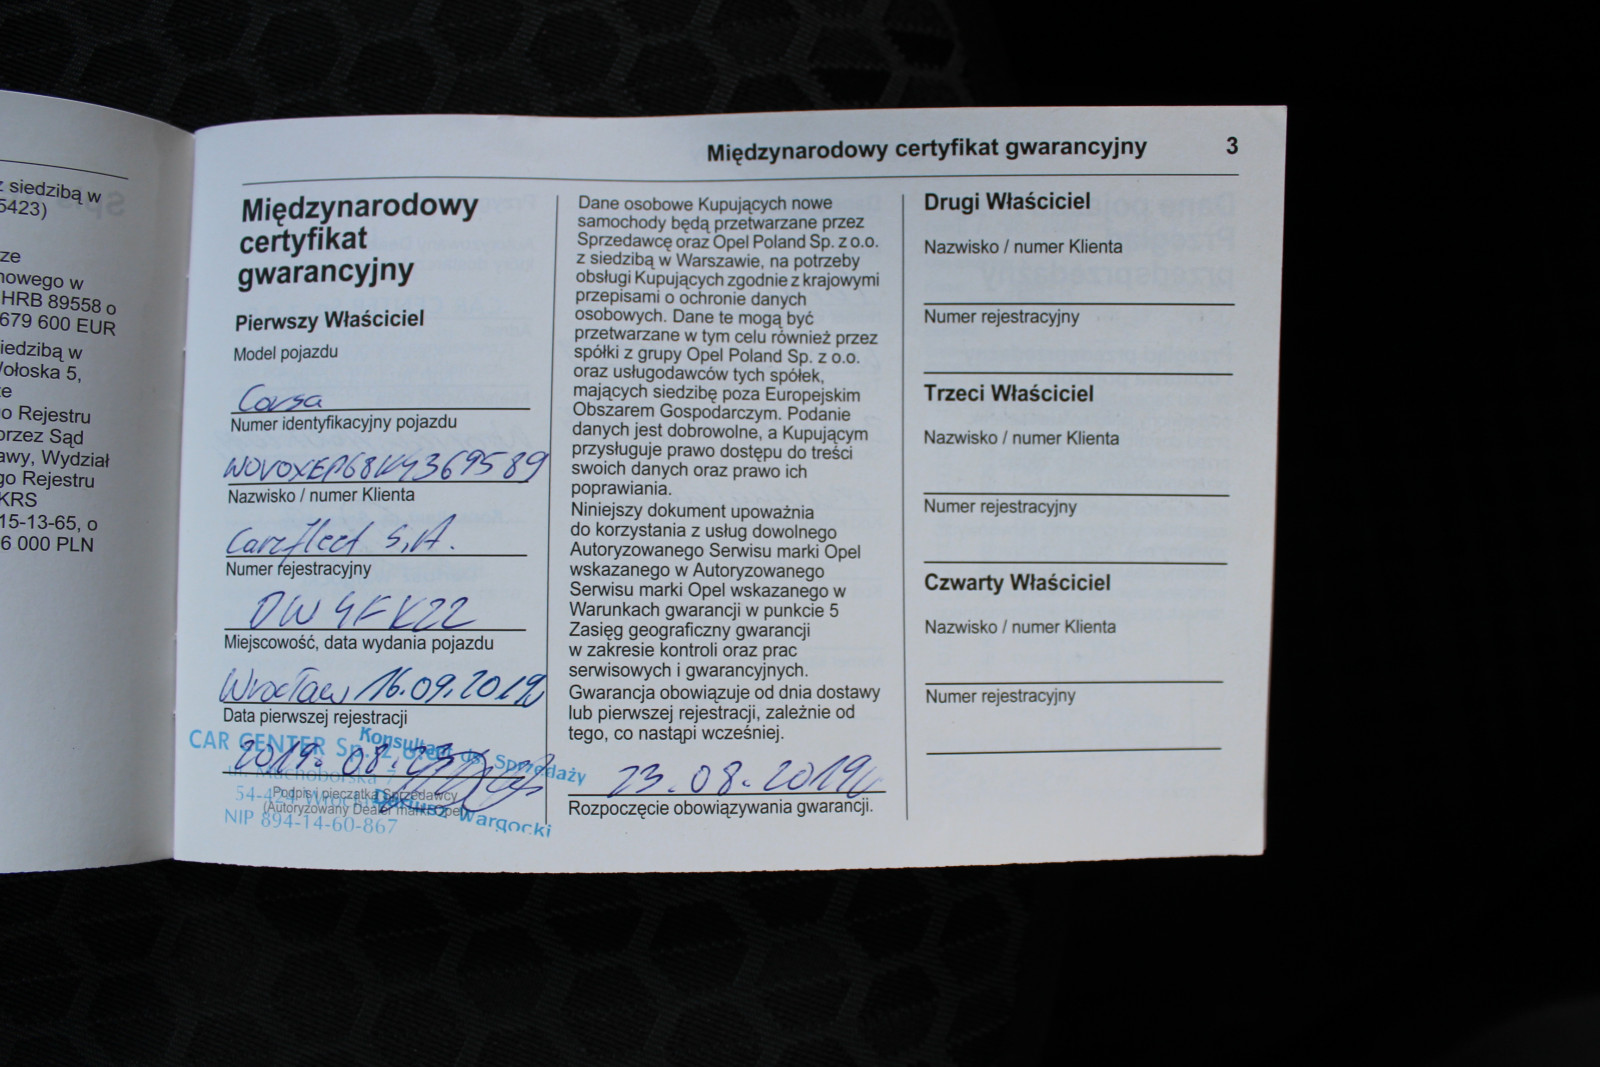 z siedzibą w
5423)
ze
nowego w
HRB 89558 o
679 600 EUR
iedzibą w
Wołoska 5,
te
o Rejestru
przez Sąd
awy, Wydział
go Rejestru
KRS
15-13-65, o
6 000 PLN
Międzynarodowy certyfikat gwarancyjny 3
Międzynarodowy
certyfikat
gwarancyjny
Pierwszy Właściciel
Model pojazdu
Corsa
Numer identyfikacyjny pojazdu
W0V0XEP68K4369589
Nazwisko / numer Klienta
Carefleet S.A.
Numer rejestracyjny
DW4FK22
Miejscowość, data wydania pojazdu
Wrocław 16.09.2019
Data pierwszej rejestracji
2019.08.23
CAR CENTER Sp. z o.o.
Konsultant ds. Sprzedaży
ul. Muchoborska 7
54-424 Wrocław
Dariusz Wargocki
NIP 894-14-60-867
Podpis i pieczątka Sprzedawcy
(Autoryzowany Dealer marki Opel)
Dane osobowe Kupujących nowe
samochody będą przetwarzane przez
Sprzedawcę oraz Opel Poland Sp. z o.o.
z siedzibą w Warszawie, na potrzeby
obsługi Kupujących zgodnie z krajowymi
przepisami o ochronie danych
osobowych. Dane te mogą być
przetwarzane w tym celu również przez
spółki z grupy Opel Poland Sp. z o.o.
oraz usługodawców tych spółek,
mających siedzibę poza Europejskim
Obszarem Gospodarczym. Podanie
danych jest dobrowolne, a Kupującym
przysługuje prawo dostępu do treści
swoich danych oraz prawo ich
poprawiania.
Niniejszy dokument upoważnia
do korzystania z usług dowolnego
Autoryzowanego Serwisu marki Opel
wskazanego w Autoryzowanego
Serwisu marki Opel wskazanego w
Warunkach gwarancji w punkcie 5
Zasięg geograficzny gwarancji
w zakresie kontroli oraz prac
serwisowych i gwarancyjnych.
Gwarancja obowiązuje od dnia dostawy
lub pierwszej rejestracji, zależnie od
tego, co nastąpi wcześniej.
23.08.2019
Rozpoczęcie obowiązywania gwarancji.
Drugi Właściciel
Nazwisko / numer Klienta
Numer rejestracyjny
Trzeci Właściciel
Nazwisko / numer Klienta
Numer rejestracyjny
Czwarty Właściciel
Nazwisko / numer Klienta
Numer rejestracyjny